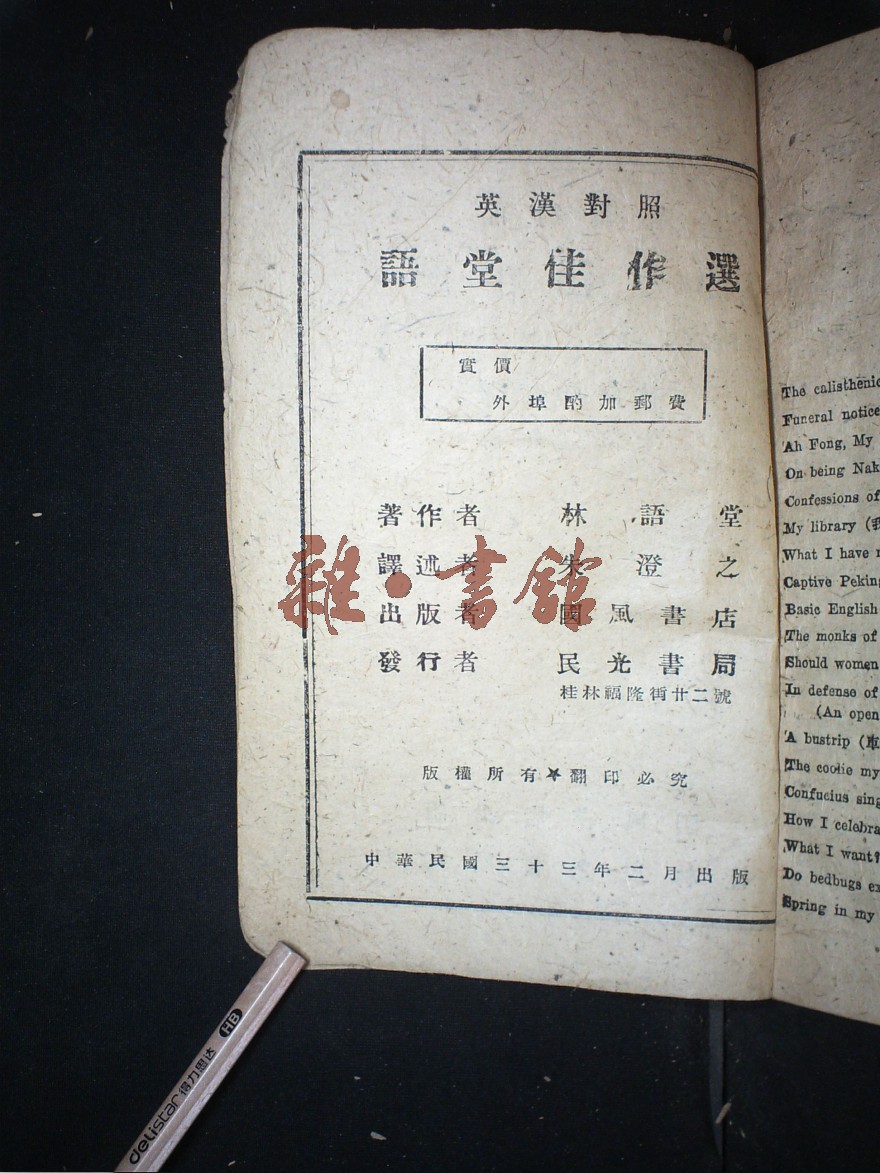 英漢對照
語堂佳作選
實價
外埠酌加郵費
著作者 林語堂
譯述者 朱澄之
出版者 國風書店
發行者 民光書局
桂林福隆街廿二號
版權所有★翻印必究
中華民國三十三年二月出版
雜·書館
delistar 得力思达 HB
The calisthenic
Funeral notice
Ah Fong, My
On being Nak
Confessions of
My library (我
What I have n
Captive Peking
Basic English
The monks of
Should women
In defense of
(An open
A bustrip (車
The coolie my
Confucius sing
How I celebra
What I want?
Do bedbugs ex
Spring in my